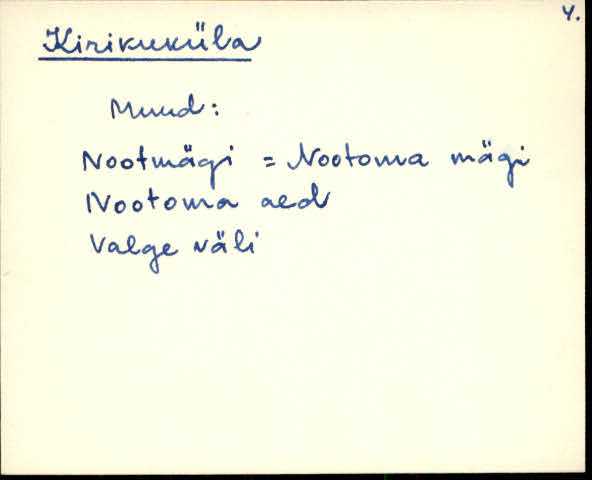 4.
Kirikuküla
Muud:
Nootmägi = Nootoma mägi
Nootoma aed
Valge väli